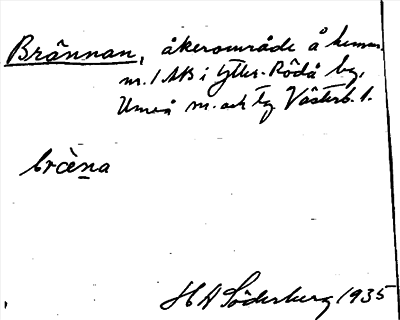 Brännan, åkerområde å hemm.
nr. 1 AB i Ytter-Rödå by,
Umeå sn. och tg Västerb. l.
bræ̀na
H A Söderberg 1935